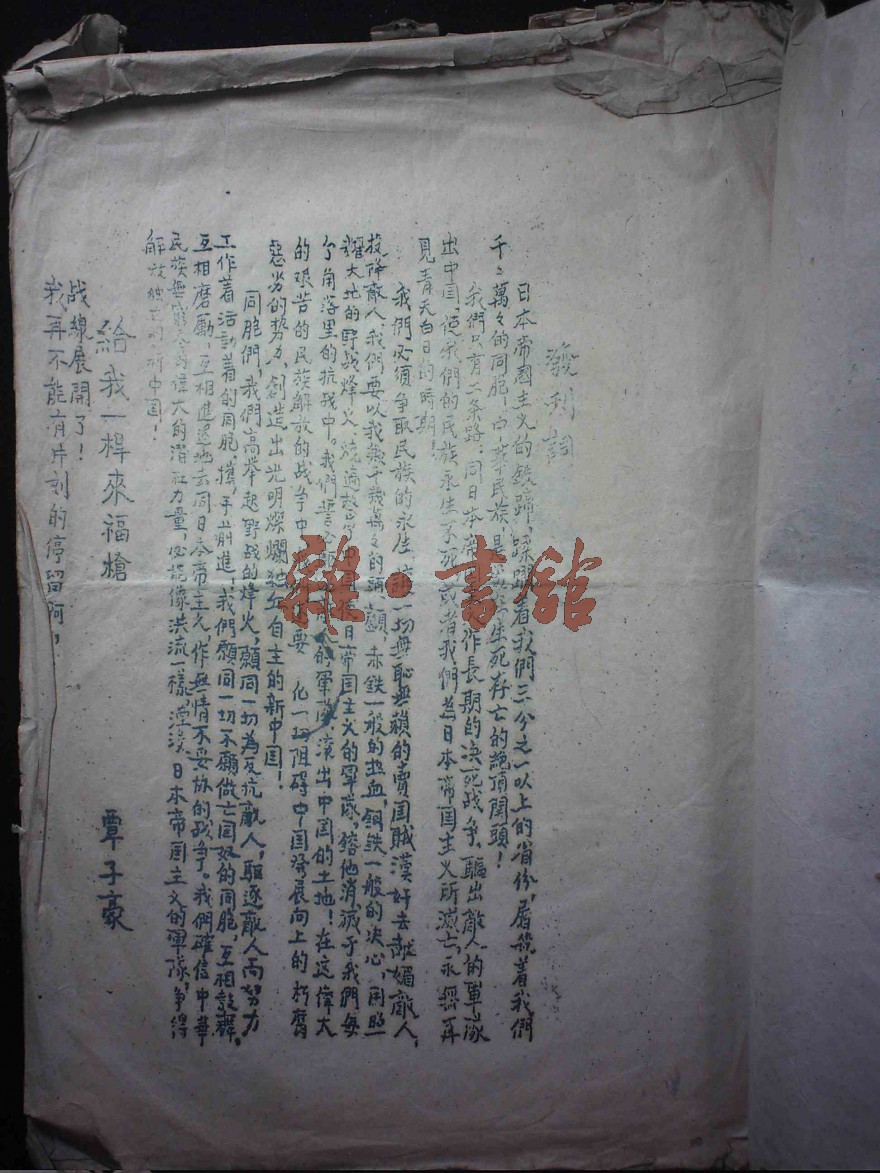 發刊詞
日本帝國主义的鉄蹄,蹂躙着我們三分之一以上的省份,屠殺着我們
千々萬々的同胞!中華民族是生死存亡的絶頂関頭!
我們只有二条路:同日本作長期的决死战争,驅出敵人的軍隊
出中国,使我們的民族永生不死或者我們為日本帝国主义所滅亡,永無再
見青天白日的時期!
我們必須争取民族的永生,一切無恥無賴的賣国賊漢奸去献媚敵人,
投降敵人,我們要以我們千萬々的頭顱,赤鉄一般的热血,鋼鉄一般的决心,用照
耀大地的野战烽火,日帝国主义的軍隊,給他消滅于我們每
个角落里的抗战中。我們的軍隊滚出中国的土地!在这偉大
的艰苦的民族解放的战争中,要化一切阻碍中国發展向上的朽腐
惡劣的势力,創造出光明燦爛独立自主的新中国!
同胞們,我們高举起野战的烽火,願同一切為反抗敵人,驅逐敵人而努力
工作着活动着的同胞,携手前進,我們願同一切不願做亡国奴的同胞,互相鼓舞,
互相磨励,互相進逃去同日本帝主义,作無情不妥协的战争。我們確信中華
民族無窮的偉大的潜在力量,必能像洪流一樣淹没日本帝国主义的軍隊,争得
解放独立的新中国!
給我一桿來福槍
覃子豪
战線展開了!
我再不能有片刻的停留啊,
雜·書舘